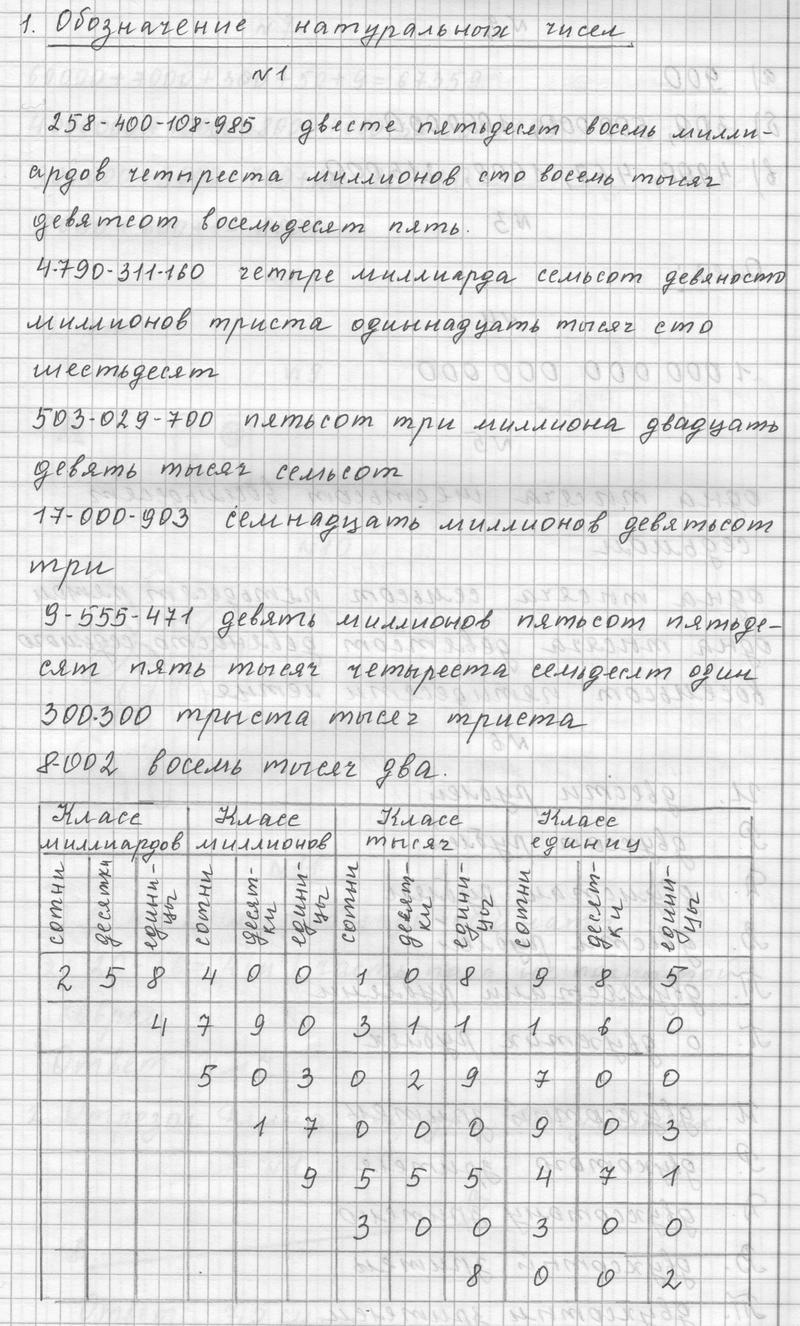 1. Обозначение натуральных чисел
№1
258-400-108-985 двести пятьдесят восемь милли-
ардов четыреста миллионов сто восемь тысяч
девятсот восемьдесят пять.
4-790-311-160 четыре миллиарда семьсот девяносто
миллионов триста одиннадцать тысяч сто
шестьдесят
503-029-700 пятьсот три миллиона двадцать
девять тысяч семьсот
17-000-903 семнадцать миллионов девятьсот
три
9-555-471 девять миллионов пятьсот пятьде-
сят пять тысяч четыреста семьдесят один
300-300 триста тысяч триста
8-002 восемь тысяч два.
Класс миллиардов Класс миллионов Класс тысяч Класс единиц
сотни десятки едини-цы сотни десят-ки едини-цы сотни десят-ки едини-цы сотни десят-ки едини-цы
2 5 8 4 0 0 1 0 8 9 8 5
4 7 9 0 3 1 1 1 6 0
5 0 3 0 2 9 7 0 0
1 7 0 0 0 9 0 3
9 5 5 5 4 7 1
3 0 0 3 0 0
8 0 0 2